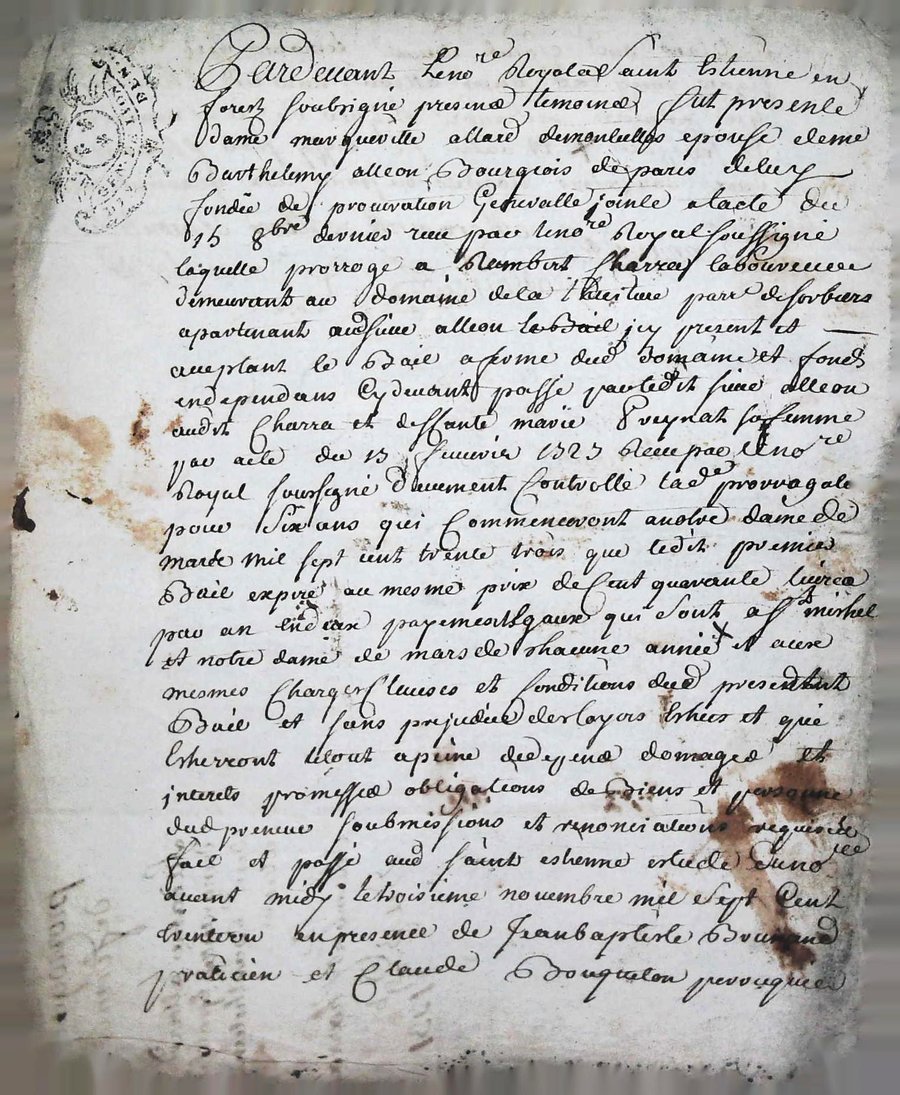 Pardevant Le no.re Royal a Saint Estienne en
forest soubsigné presens temoins fut presente
Dame margueritte allard demontulles epouse de me
Barthelemy alleon Bourgois de paris de luy
fondée de procuration generalle jointe a lacte du
15 8bre dernier reçu par le no.re Royal soussigné
laquelle prorroge a Rambert Charra laboureur
demeurant au domaine de la parr. de sorbiers
apartenant audsieur alleon le Bail jcy present et
aceptant le Bail a ferme dud. domaine et fonds
en dependans Cydevant passé par ledit sieur alleon
audit Charra et deffunte marie Preynat sa femme
par acte du 13 Janvier 1727 Receu par le no.re
Royal soussigné duement Controllé lad. prorrogate
pour Six ans qui Commenceront a notre dame de
mars mil sept cent trente trois que ledit premier
Bail expire au mesme prix de Cent quarante livres
par an en deux payements Egaux qui sont a St michel
et notre dame de mars de chacune année et aux
mesmes Charges Clauses et Conditions dud. present
Bail et sans prejudice des loyers Echus et qui
Echerront letout a peine de depens domages et
interets promesses obligations de Biens et personne
dud. preneur soubmissions et renonciations requises
fait et passé aud. saint estienne estude dud. no.re
avant midy le troisieme novembre mil sept Cent
trente un en presence de Jean baptiste
praticien et Claude Bouquelon perruquier